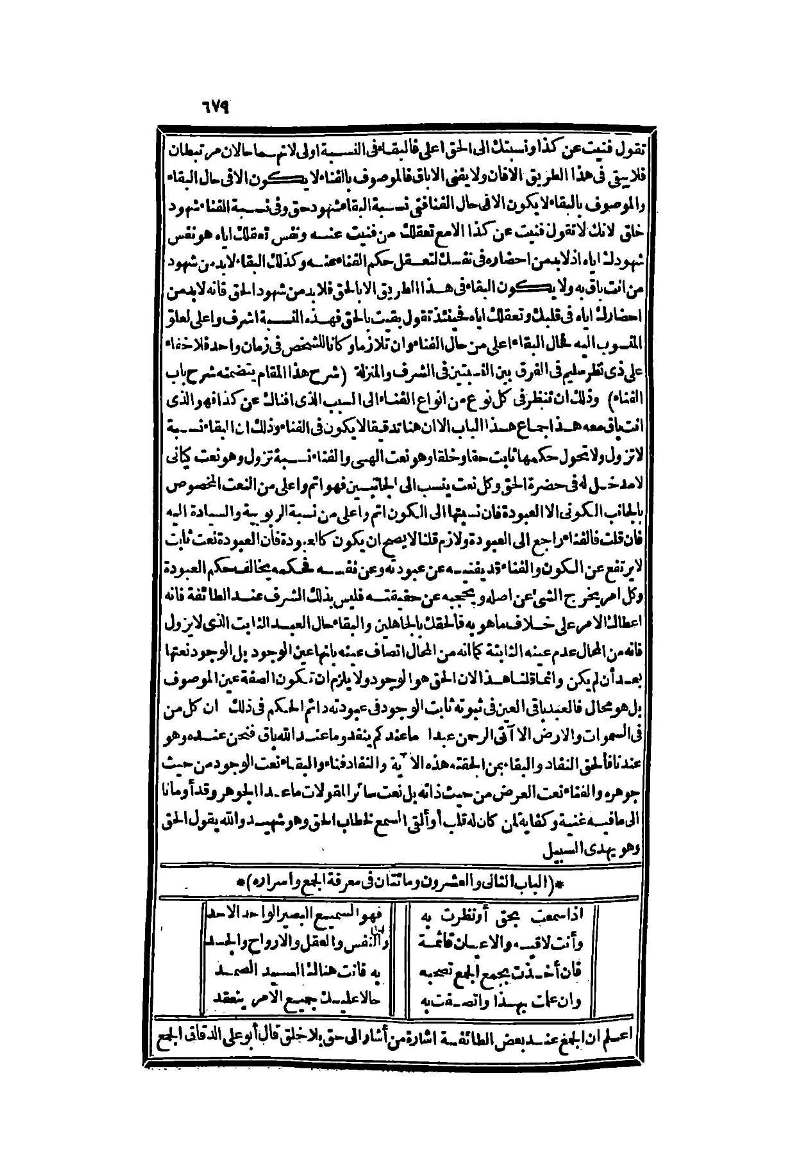 ٦٧٩
تقول فنيت عن كذا ونسبتك الى الحق اعلى فالبقاء فى النسبة اولى لانهما حالان مرتبطان
فلا يبقى فى هذا الطريق الا فان ولا يفنى الا باق فالموصوف بالفناء لا يكون الا فى حال البقاء
والموصوف بالبقاء لا يكون الا فى حال الفناء ففى نسبة البقاء شهود حق وفى نسبة الفناء شهود
خلق لانك لا تقول فنيت عن كذا الا مع تعقلك من فنيت عنه ونفس تعقلك اياه هو نفس
شهودك اياه اذ لابد من احضاره فى نفسك لتعقل حكم الفناء عنه وكذلك البقاء لابد من شهود
من انت باق به ولا يكون البقاء فى هذا الطريق الا بالحق فلابد من شهود الحق فانه لابد من
احضارك اياه فى قلبك وتعقلك اياه فحينئذ تقول بقيت بالحق فهذه النسبة اشرف واعلى لعلو
المنسوب اليه فحال البقاء اعلى من حال الفناء وان تلازما وكانا للشخص فى زمان واحد فلا خفاء
على ذى نظر سليم فى الفرق بين النسبتين فى الشرف والمنزلة (شرح هذا المقام يتضمنه شرح باب
الفناء) وذلك ان تنظر فى كل نوع من انواع الفناء الى السبب الذى افناك عن كذا فهو الذى
انت باق معه هذا جماع هذا الباب الا ان هنا تدقيقا لا يكون فى الفناء وذلك ان البقاء نسبة
لا تزول ولا تحول حكمها ثابت حقا وخلقا وهو نعت الهى والفناء نسبة تزول وهو نعت كيانى
لا مدخل له فى حضرة الحق وكل نعت ينسب الى الجانبين فهو اتم واعلى من النعت المخصوص
بالجانب الكونى الا العبودة فان نسبتها الى الكون اتم واعلى من نسبة الربوبية والسيادة اليه
فان قلت فالفناء راجع الى العبودة ولازم قلنا لا يصح ان يكون كالعبودة فان العبودة نعت ثابت
لا يرتفع عن الكون والفناء قد يفنيه عن عبودته وعن نفسه فحكمه يخالف حكم العبودة
وكل امر يخرج الشئ عن اصله ويحجبه عن حقيقته فليس بذلك الشرف عند الطائفة فانه
اعطاك الامر على خلاف ما هو به فالحقك بالجاهلين والبقاء حال العبد الثابت الذى لا يزول
فانه من المحال عدم عينه الثابتة كما انه من المحال اتصاف عينه بانها عين الوجود بل الوجود نعتها
بعد أن لم يكن وانما قلنا هذا لان الحق هو الوجود ولا يلزم ان تكون الصفة عين الموصوف
بل هو محال فالعبد باقى العين فى ثبوته ثابت الوجود فى عبودته دائم الحكم فى ذلك ان كل من
فى السموات والارض الا آتى الرحمن عبدا ما عندكم ينفد وما عند الله باق فنحن عنده وهو
عندنا فالحق النفاد والبقاء بمن الحقته هذه الآية والنفاد فناء والبقاء نعت الوجود من حيث
جوهره والفناء نعت العرض من حيث ذاته بل نعت سائر المقولات ما عدا الجوهر وقد أومأنا
الى ما فيه غنية وكفاية لمن كان له قلب أو ألقى السمع لخطاب الحق وهو شهيد والله يقول الحق
وهو يهدى السبيل
*(الباب الثانى والعشرون ومائتان فى معرفة الجمع وأسراره)*
اذا سمعت بحق أو نظرت به فهو السميع البصير الواحد الاحد
وأنت لا قيه والاعيان قائمة والنفس والعقل والارواح والجسد
فان أخذت بجمع الجمع تصحبه به فانت هناك السيد الصمد
وان علمت بهذا واتصفت به حالا عليك جميع الامر ينعقد
اعلم ان الجمع عند بعض الطائفة اشارة من أشار الى حق بلا خلق قال أبو على الدقاق الجمع